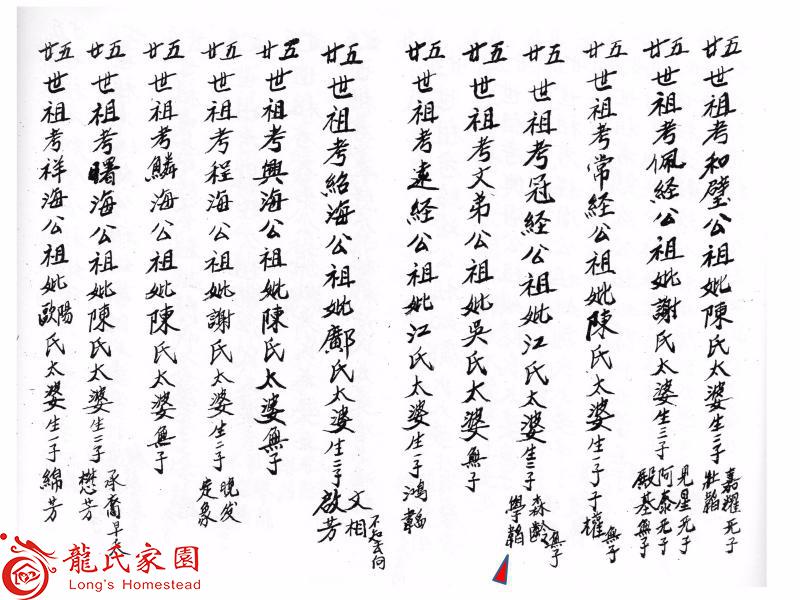 廿五世祖考和璧公祖妣陳氏太婆生二子嘉耀无子壯韜
廿五世祖考佩経公祖妣謝氏太婆生三子見星无子阿泰无子殿基無子
廿五世祖考常経公祖妣陳氏太婆生一子子權無子
廿五世祖考冠経公祖妣江氏太婆生二子森齡無子學韜
廿五世祖考文弟公祖妣吳氏太婆無子
廿五世祖考遠経公祖妣江氏太婆生一子鴻韜
廿五世祖考紹海公祖妣鄺氏太婆生二子文相不知去向啟芳
廿五世祖考興海公祖妣陳氏太婆無子
廿五世祖考程海公祖妣謝氏太婆生二子晚發定象
廿五世祖考鱗海公祖妣陳氏太婆無子
廿五世祖考曙海公祖妣陳氏太婆生二子承喬早夭懋芳
廿五世祖考祥海公祖妣歐陽氏太婆生一子綿芳
龍氏家園
Long's Homestead